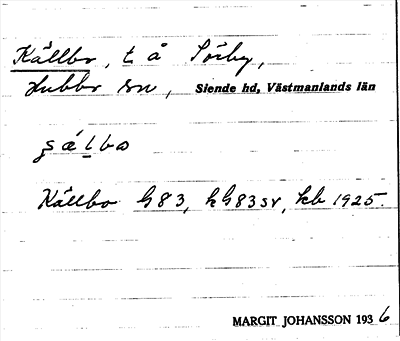 Källbo, t. å Sörby,
Hubbo sn, Siende hd, Västmanlands län
Källbo G83, kG83sv, kb 1925.
MARGIT JOHANSSON 1936